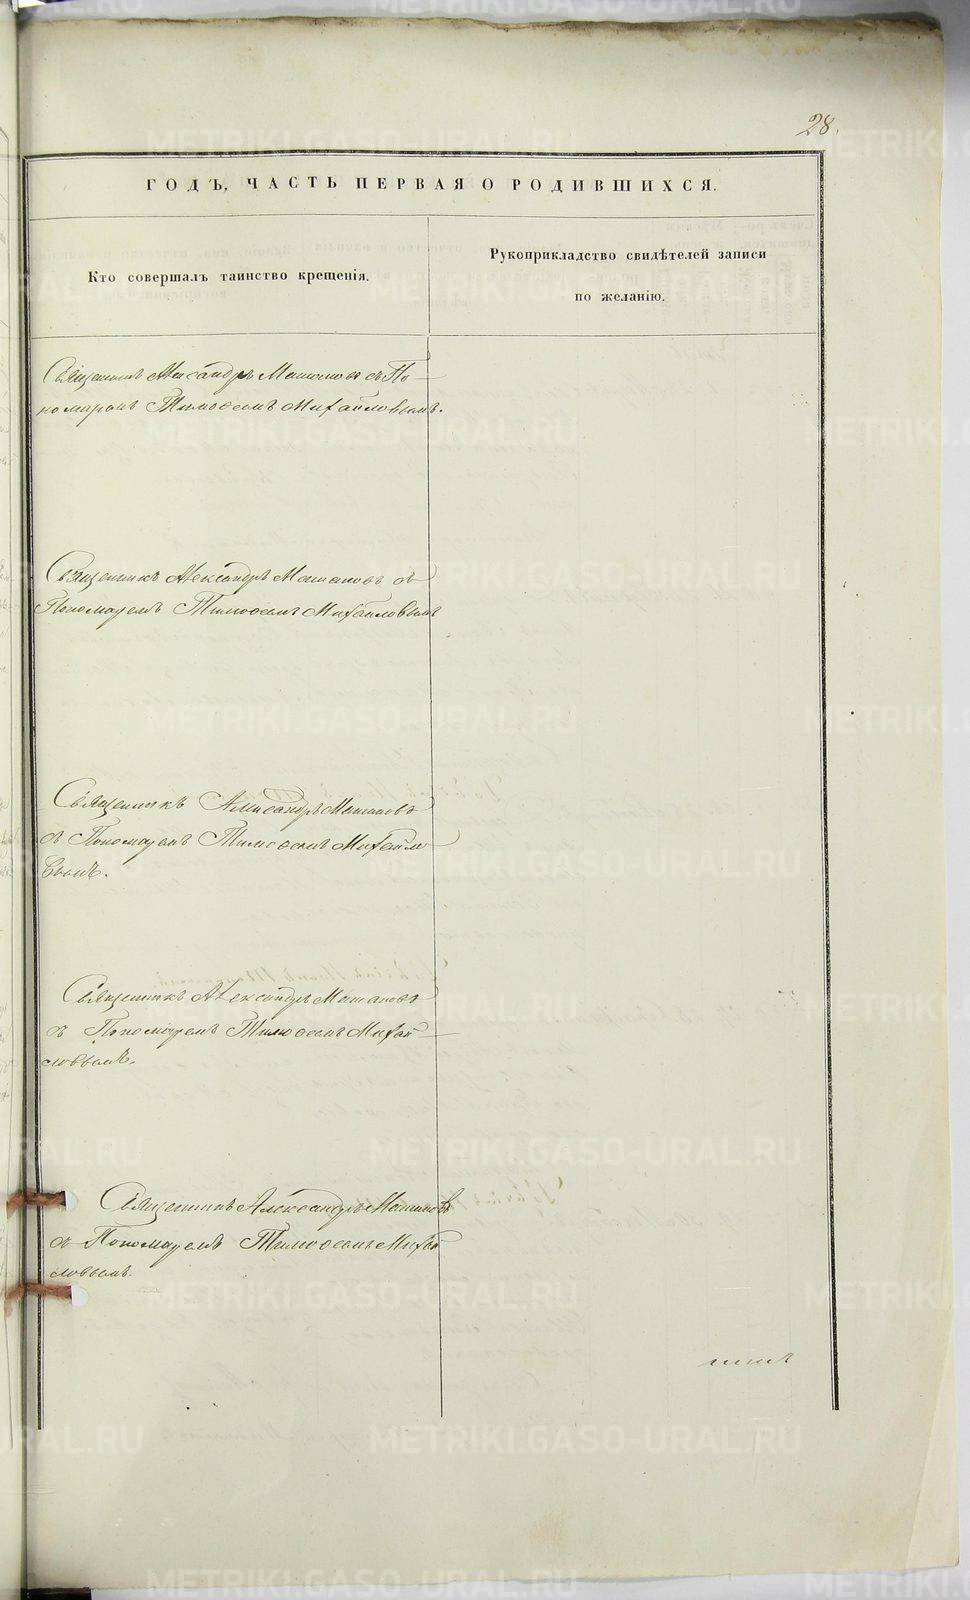 28.
ГОДЪ, ЧАСТЬ ПЕРВАЯ О РОДИВШИХСЯ.
Кто совершалъ таинство крещенія.
Рукоприкладство свидѣтелей записи
по желанію.
Священникъ Александръ съ По-
номаремъ Тимоѳеемъ Михайловымъ.
Священникъ Александръ Матановъ съ
Пономаремъ Тимоѳеемъ Михайловымъ
Священникъ Александръ Матановъ
съ Пономаремъ Тимоѳеемъ Михайло-
вымъ.
Священникъ Александръ Матановъ
съ Пономаремъ Тимоѳеемъ Михай-
ловымъ.
Священникъ Александръ Матановъ
съ Пономаремъ Тимоѳеемъ Михай
ловымъ.
METRIKI.GASO-URAL.RU